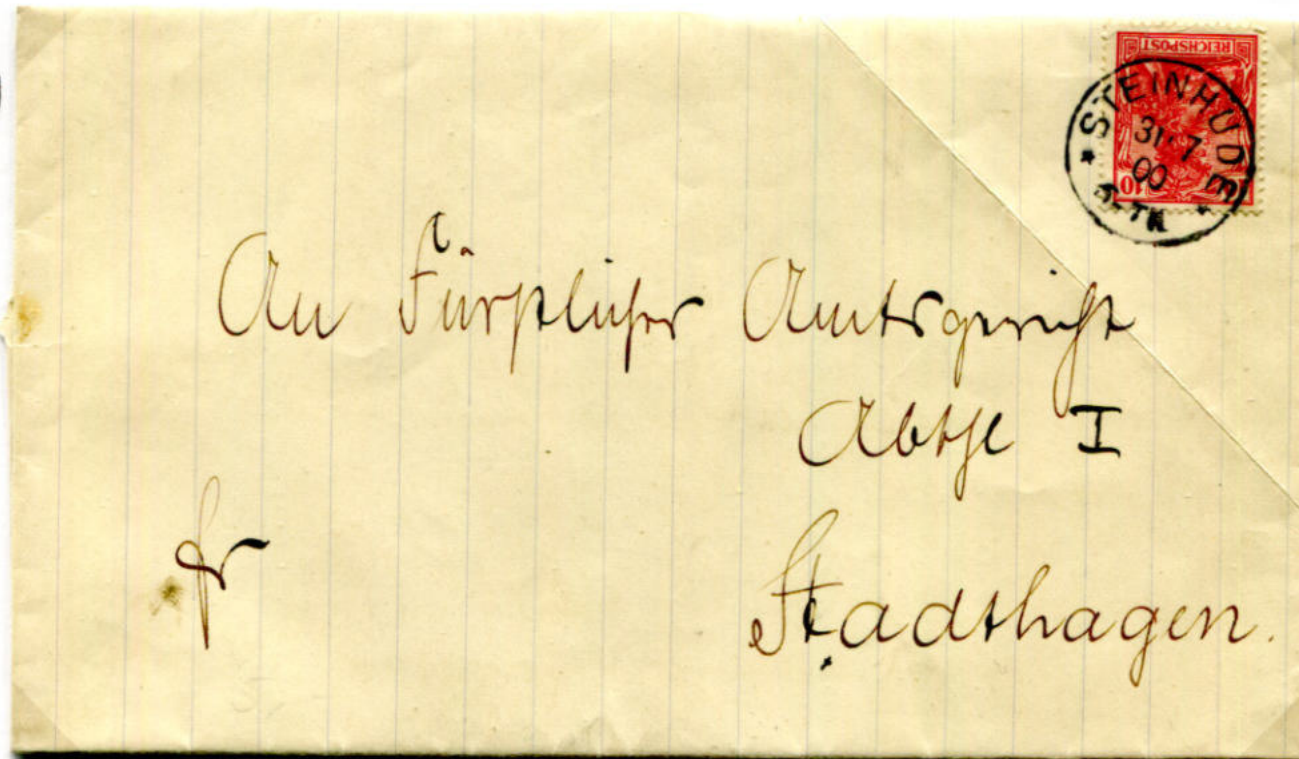 REICHSPOST
10
STEINHUDE
31.7
00
5-7N
An Fürstliches Amtsgericht
Abthl I
fr
Stadthagen.